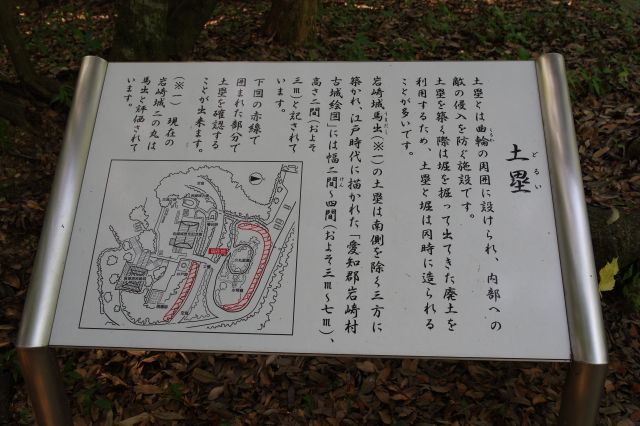 土塁
どるい
土塁とは曲輪の周囲に設けられ、内部への
くるわ
敵の侵入を防ぐ施設です。
土塁を築く際は堀を掘って出てきた廃土を
利用するため、土塁と堀は同時に造られる
ことが多いです。
岩崎城馬出(※一)の土塁は南側を除く三方に
うまだし
築かれ、江戸時代に描かれた「愛知郡岩崎村
古城絵図」には幅二間~四間(およそ三m~七m)、
けん
高さ二間(およそ
三m)と記されて
います。
下図の赤線で
囲まれた部分で
土塁を確認する
ことが出来ます。
(※一) 現在の
岩崎城二の丸は
馬出と評価されて
います。